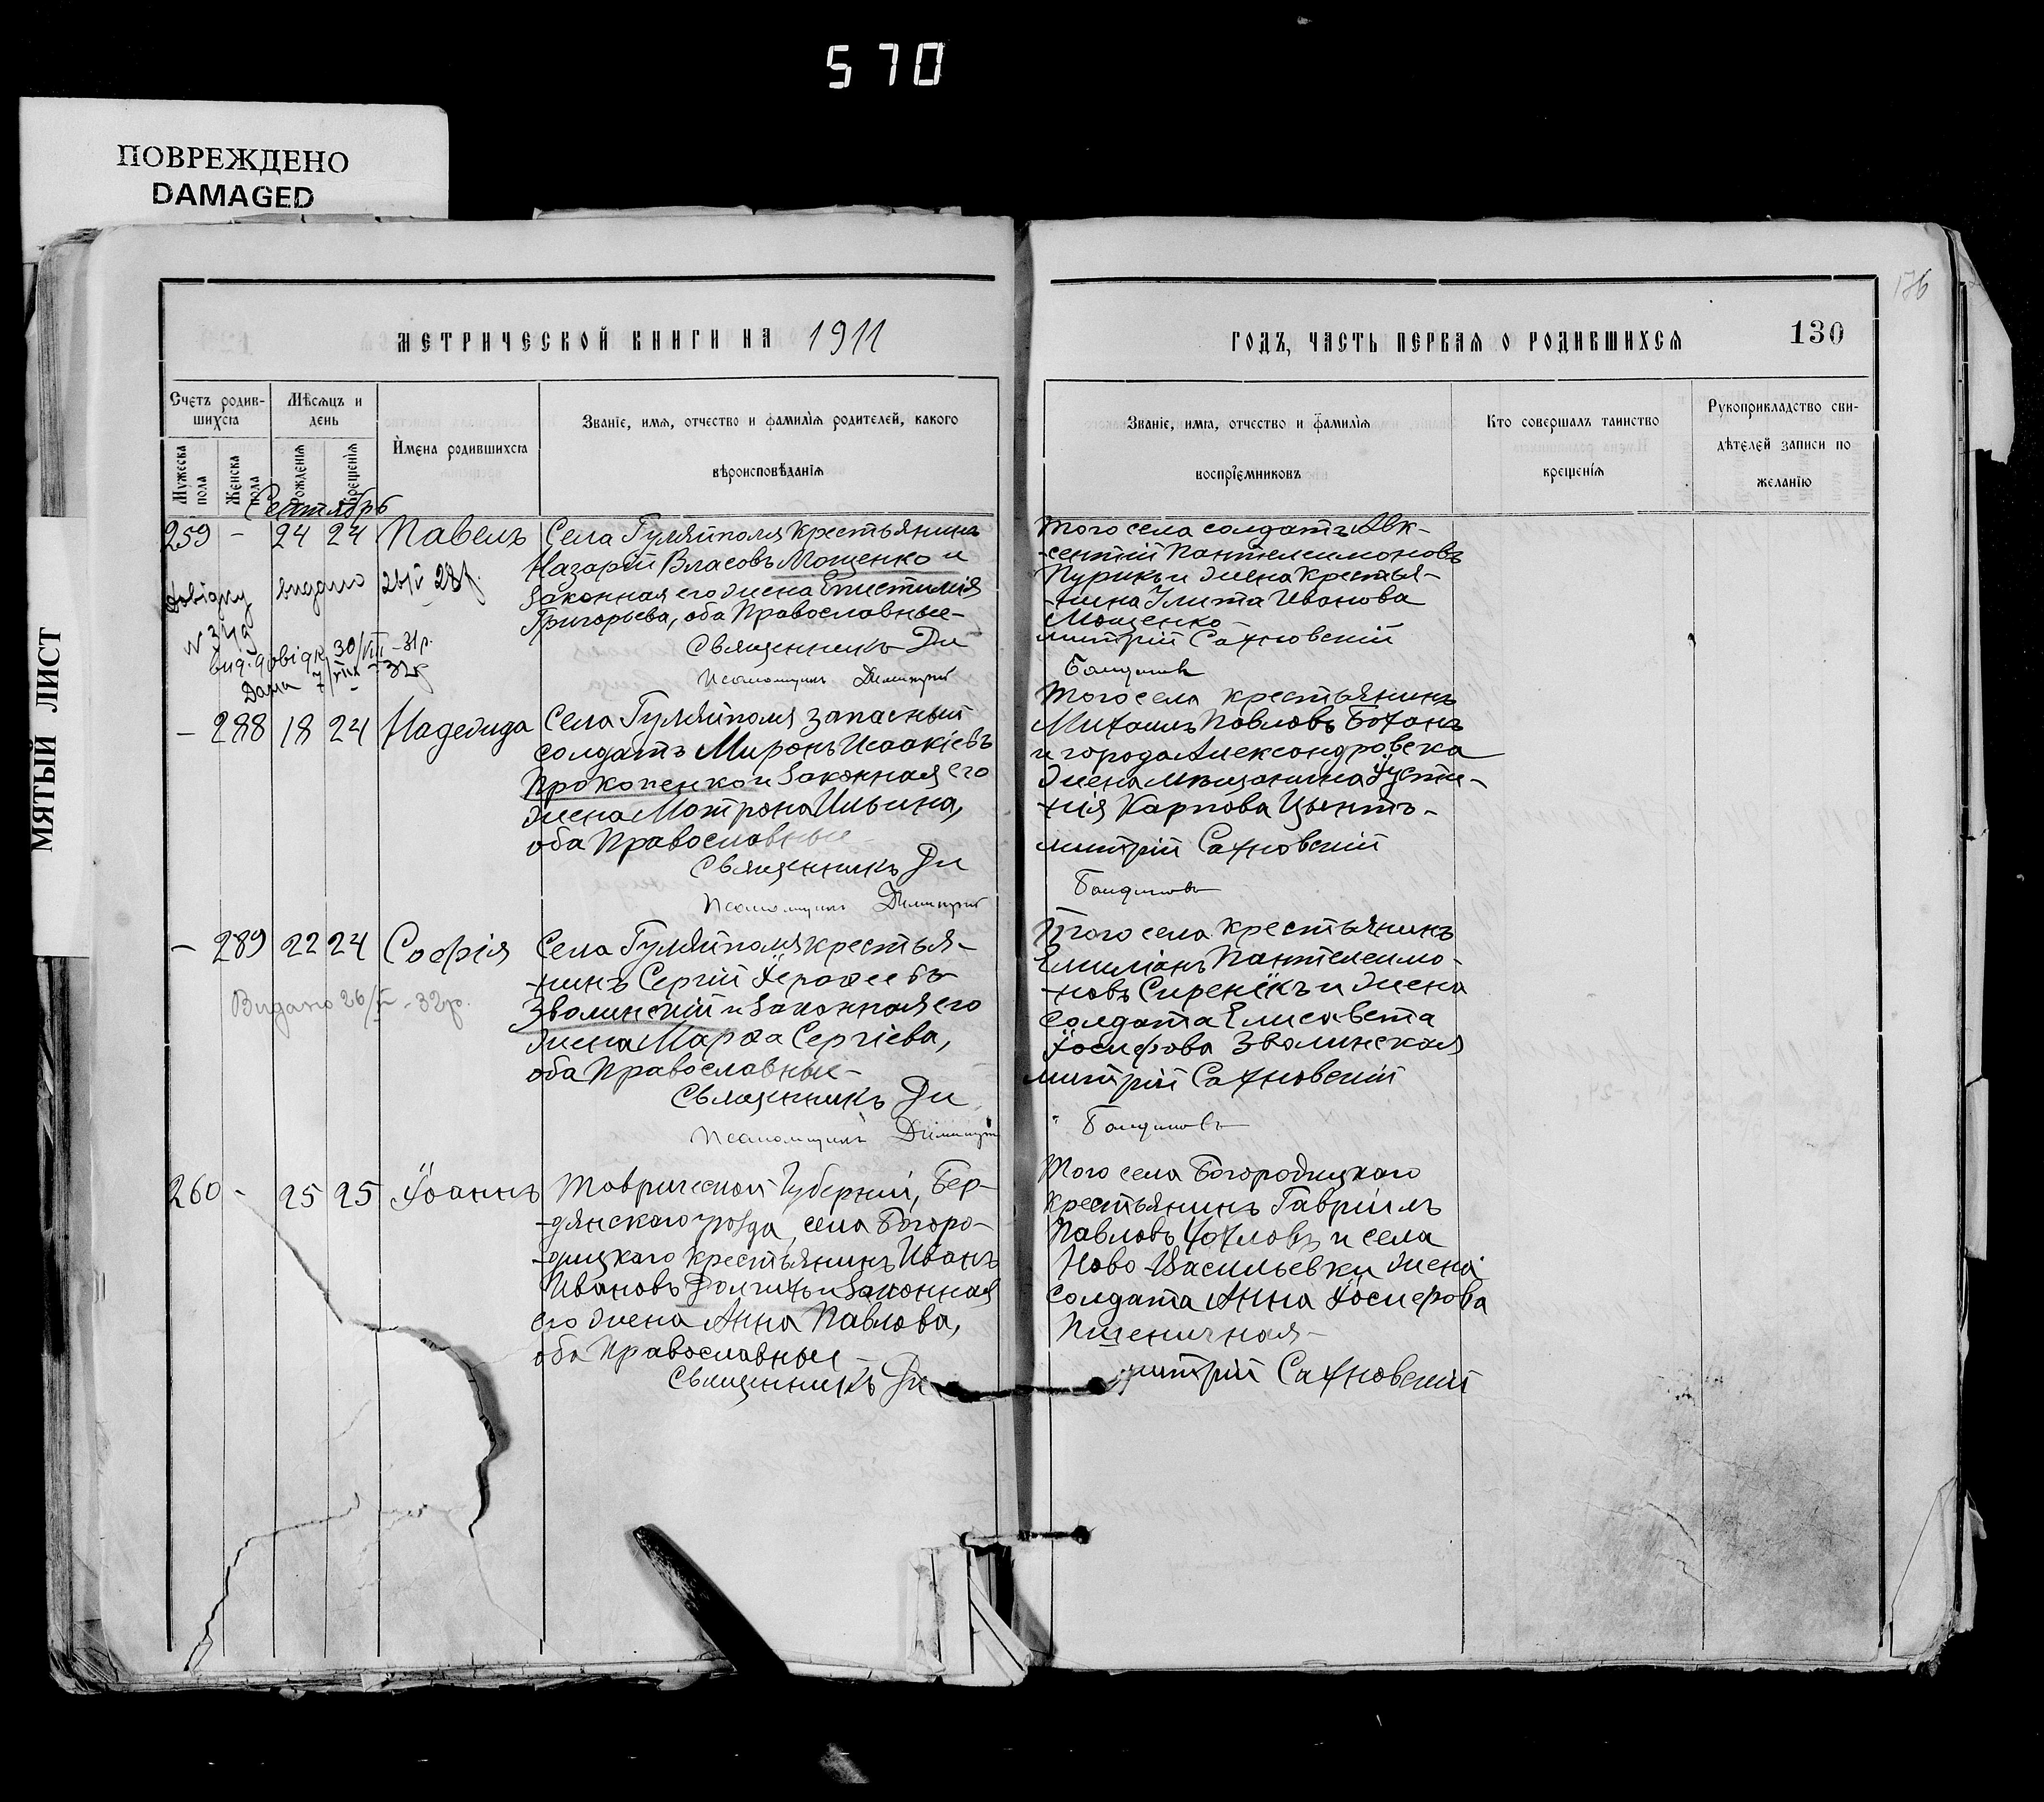 570
ПОВРЕЖДЕНО
DAMAGED
МЯТЫЙ ЛИСТ
176
МЕТРИЧЕСКОЙ КНИГИ НА 1911
ГОДЪ, ЧАСТЬ ПЕРВАЯ О РОДИВШИХСЯ
130
Счетъ родив-
шихся
Мѣсяцъ и
день
Мужеска
пола
Женска
пола
Рожденія
Крещенія
Имена родившихся
Званіе, имя, отчество и фамилія родителей, какого
вѣроисповѣданія
Званіе, имя, отчество и фамилія
воспріемниковъ
Кто совершалъ таинство
крещенія
Рукоприкладство сви-
дѣтелей записи по
желанію
Сентябрь
259 - 24 24 Павелъ
Села Гуляйполя крестьянинъ
Назарій Власовъ Мощенко и
законная его жена Епистимія
Григорьева, оба Православные-
Священникъ Ди
Псаломщикъ Димитрій
Того села солдатъ Авк-
-сентій Пантелеимоновъ
Пурикъ и жена крестья-
-нина Улита Иванова
Мощенко-
митрій Сахновскій
Бандиновъ
видано
вид. довідк. 30/VIII - 31р.
Дана
- 288 18 24 Надежда
Села Гуляйполя запасный
солдатъ Миронъ Исаакіевъ
Прокопенко и законная его
жена Матрона Ильина,
оба Православные
Священникъ Ди
Псаломщикъ Димитрій
Того села крестьянинъ
Михаилъ Павловъ Боханъ
и города Александровска
жена мѣщанина Іусти-
-нія Карпова
митрій Сахновскій
Бандиновъ
- 289 22 24 Софія
Села Гуляйполя крестья-
-нинъ Сергій Іероѳеевъ
Зволинскій и законная его
жена Марѳа Сергіева,
оба Православные-
Священникъ Ди
Псаломщикъ Димитрій
Того села крестьянинъ
Емиліанъ Пантелеимо-
-новъ и жена
солдата Елисавета
Іосифова Зволинская
митрій Сахновскій
Бандиновъ
Видано 26/II - 32р.
260 - 25 25 Іоаннъ
Таврической Губерніи, Бер-
-дянскаго уѣзда, села Богоро-
-дицкаго крестьянинъ Иванъ
Ивановъ Долгихъ и законная
его жена Анна Павлова,
оба Православные-
Священникъ Ди
Того села Богородицкаго
крестьянинъ Гавріилъ
Павловъ и села
Ново-Васильевки жена
солдата Анна Іосифова
Пшеничная-
митрій Сахновскій